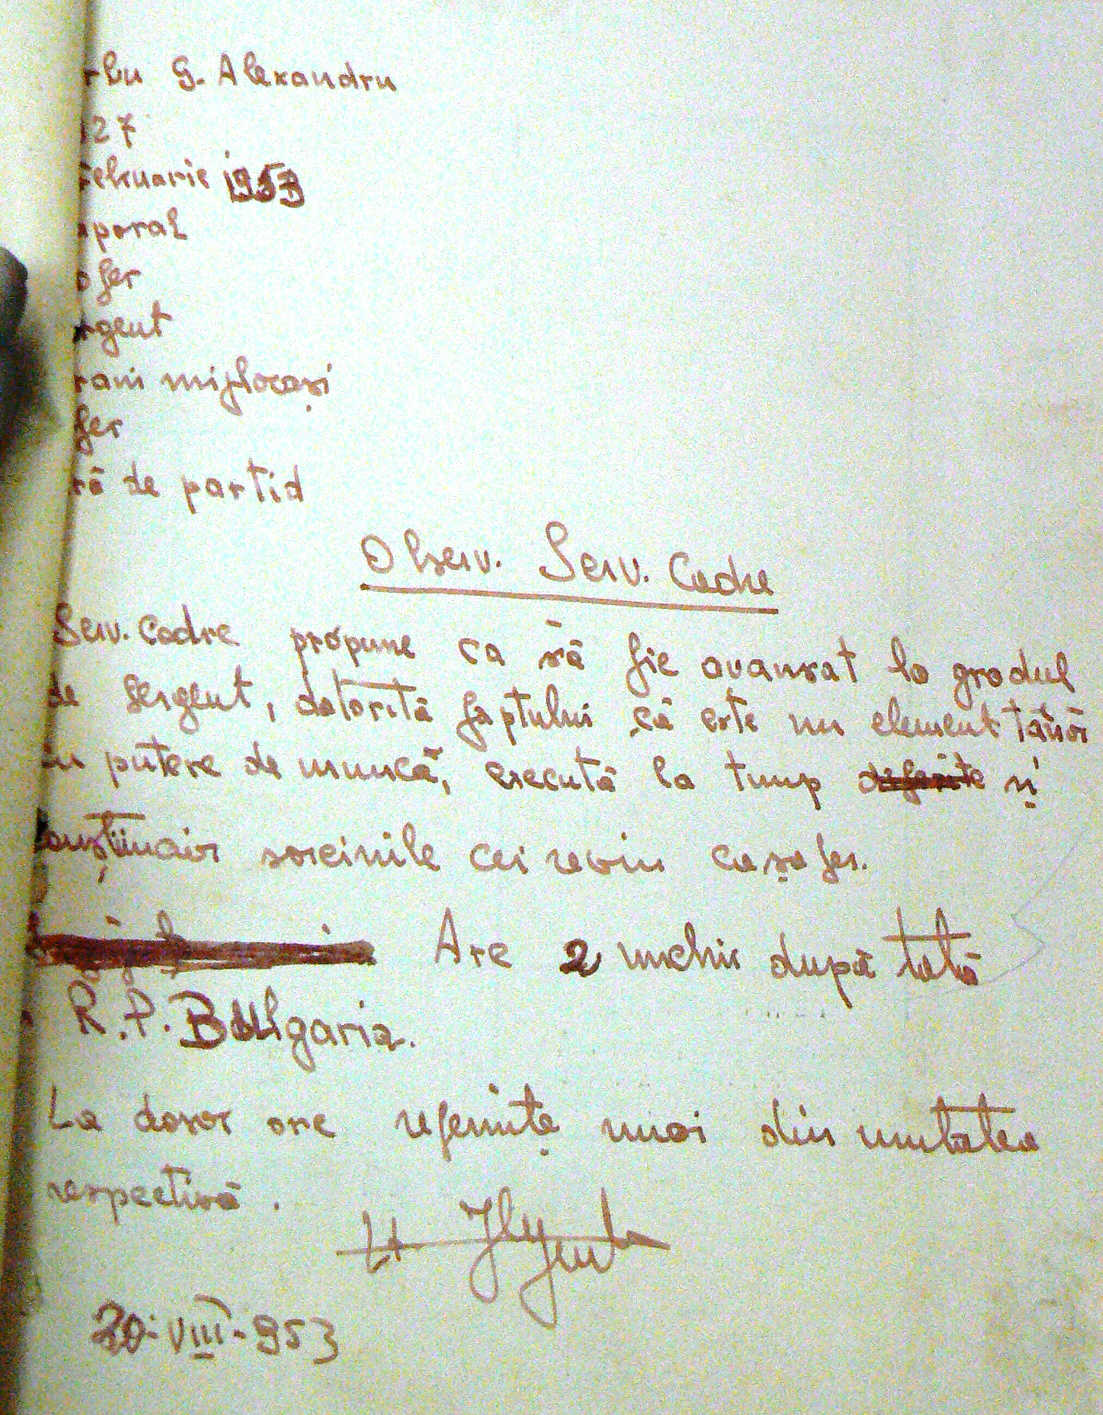 rbu G. Alexandru
927
Februarie 1953
aporal
ofer
rgent
rani mijlocași
fer
ră de partid
Observ. Serv. Cadre
Serv. Cadre propune ca să fie avansat la gradul
de Sergent, datorită faptului că este un element tânăr
cu putere de muncă, execută la timp și
conștiincios sarcinile cei revin ca șofer.
Are 2 unchi după tată
R.P. Bulgaria.
La dosar are referințe numai din unitatea
respectivă.
Lt
20-VIII-953